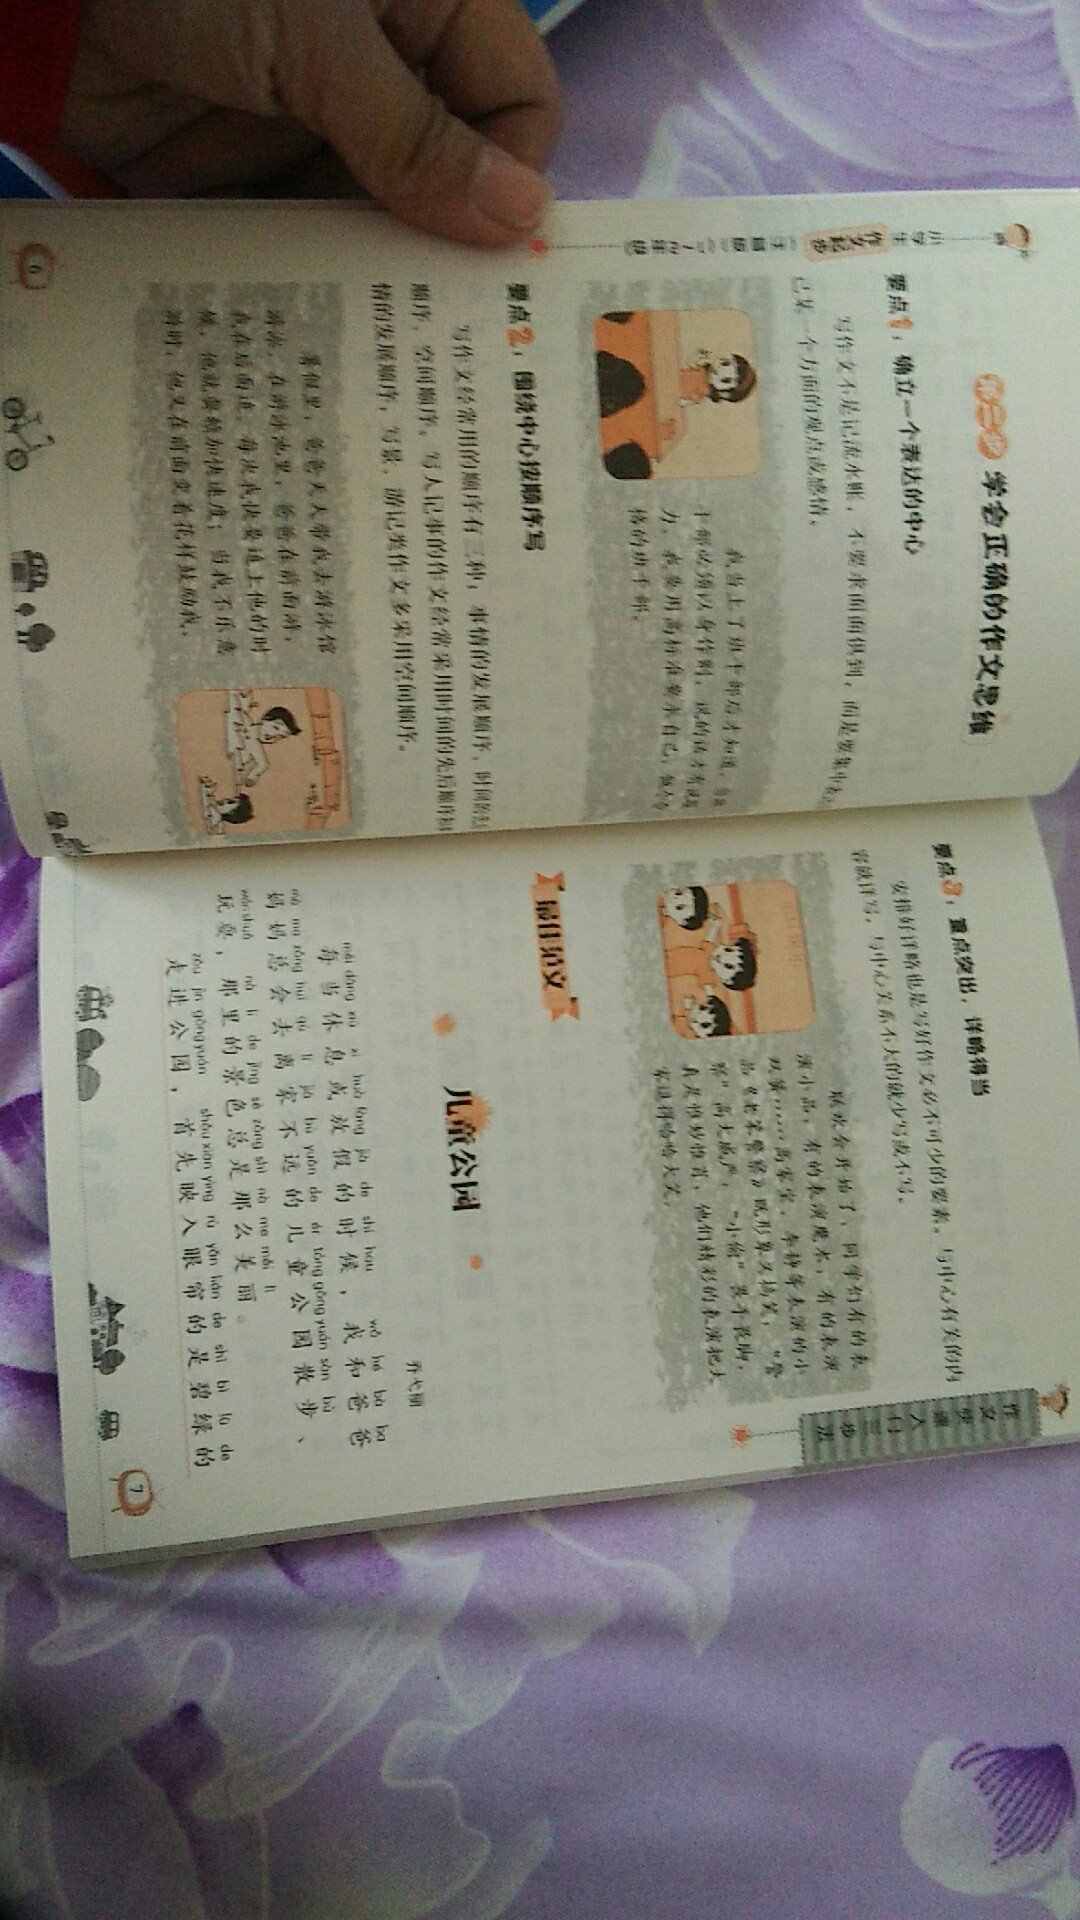 小学生
作文起步
（注音版）（一～二年级）
第二步 学会正确的作文思维
要点1：确立一个表达的中心
写作文不是记流水账，不要求面面俱到，而是要集中表
己某一个方面的观点或感情。
我当上了班干部后才知道，当班
干部必须以身作则，说的话才有说服
力。我要用高标准要求自己，做个合
格的班干部。
要点2：围绕中心按顺序写
写作文经常用的顺序有三种：事情的发展顺序、时间的先后
顺序、空间顺序。写人记事的作文经常采用时间的先后顺序和
情的发展顺序，写景、游记类作文多采用空间顺序。
暑假里，爸爸天天带我去游泳馆
游泳。在游泳池里，爸爸在前面游，
我在后面追。每次我快要追上他的时
候，他就要稍加快速度；当我不乐意
游时，他又在前面变着花样鼓励我。
6
作文快速入门三步法
要点3：重点突出，详略得当
安排好详略也是写好作文必不可少的要素。与中心有关的内
容就详写，与中心关系不大的就少写或不写。
联欢会开始了，同学们有的表
演小品，有的表演魔术，有的表演
双簧……高家宝、李静等表演的小
品《老笨警察》既形象又搞笑，“警
察”高大威严，“小偷”装手装脚，
真是惟妙惟肖，他们精彩的表演把大
家逗得哈哈大笑。
最佳范文
儿童公园
乔弋丽
měi dāng xiū xi huò fàng jià de shí hou wǒ hé bà ba
每当休息或放假的时候，我和爸爸
mā ma zǒng huì qù lí jiā bù yuǎn de ér tóng gōng yuán sàn bù
妈妈总会去离家不远的儿童公园散步、
wán shuǎ nà lǐ de jǐng sè zǒng shì nà me měi lì
玩耍，那里的景色总是那么美丽。
zǒu jìn gōng yuán shǒu xiān yìng rù yǎn lián de shì bì lǜ de
走进公园，首先映入眼帘的是碧绿的
7